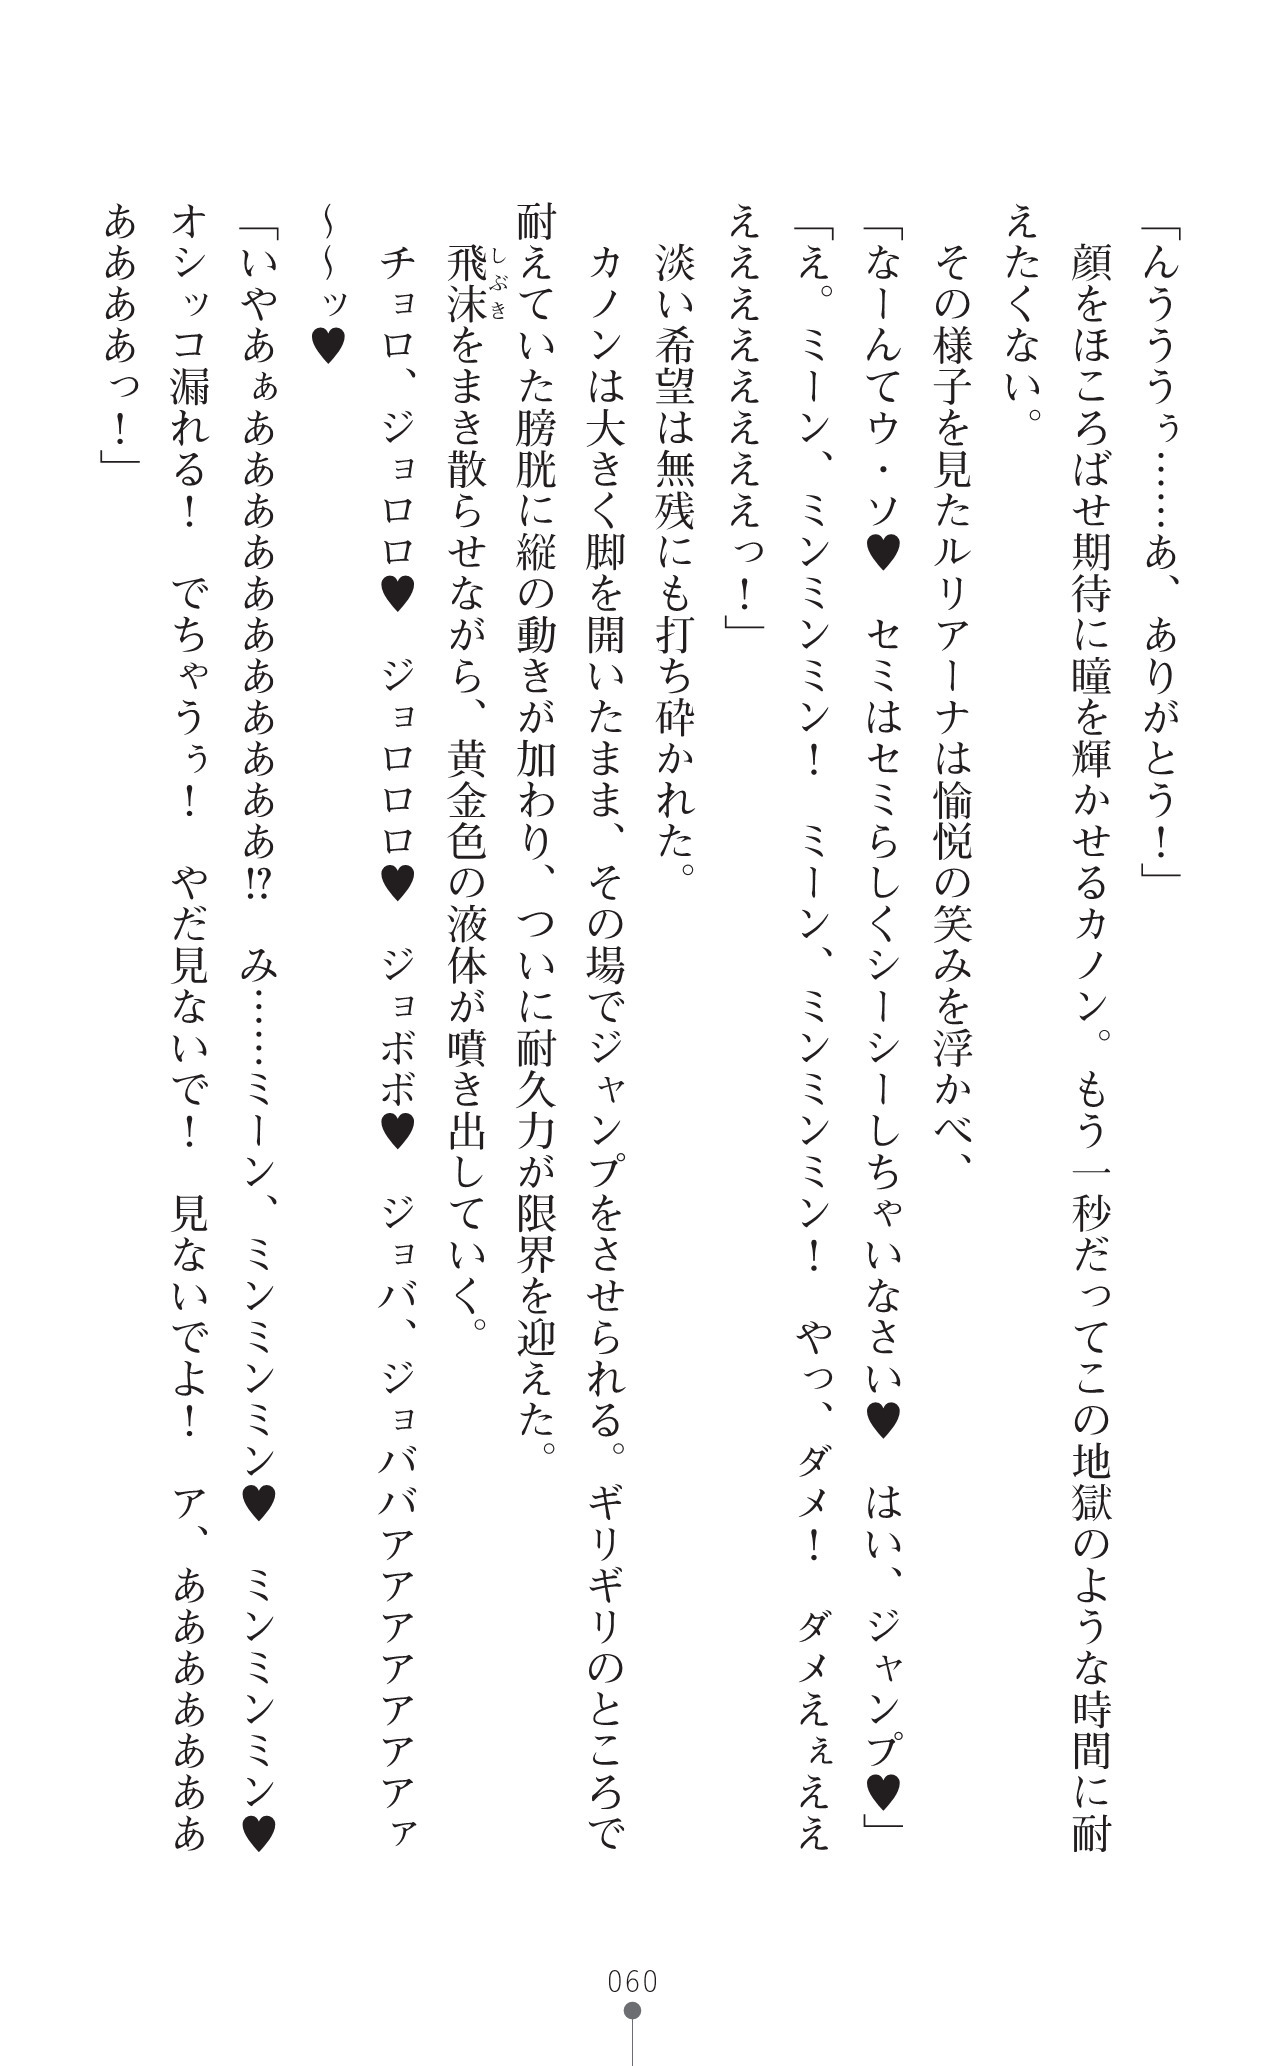 「んうううぅ……あ、ありがとう！」
　顔をほころばせ期待に瞳を輝かせるカノン。もう一秒だってこの地獄のような時間に耐
えたくない。
　その様子を見たルリアーナは愉悦の笑みを浮かべ、
「なーんてウ・ソ♥　セミはセミらしくシーシーしちゃいなさい♥　はい、ジャンプ♥」
「え。ミーン、ミンミンミンミン！　ミーン、ミンミンミン！　やっ、ダメ！　ダメえぇええ
ええええええええっ！」
　淡い希望は無残にも打ち砕かれた。
　カノンは大きく脚を開いたまま、その場でジャンプをさせられる。ギリギリのところで
耐えていた膀胱に縦の動きが加わり、ついに耐久力が限界を迎えた。
　飛沫をまき散らせながら、黄金色の液体が噴き出していく。
しぶき
　チョロ、ジョロロ♥　ジョロロロ♥　ジョボボ♥　ジョバ、ジョババアアアアアアアァ
〜〜ッ♥
「いやあぁあああああああああああ⁉　み……ミーン、ミンミンミン♥　ミンミンミン♥
オシッコ漏れる！　でちゃうぅ！　やだ見ないで！　見ないでよ！　ア、あああああああ
ああああっ！」
060